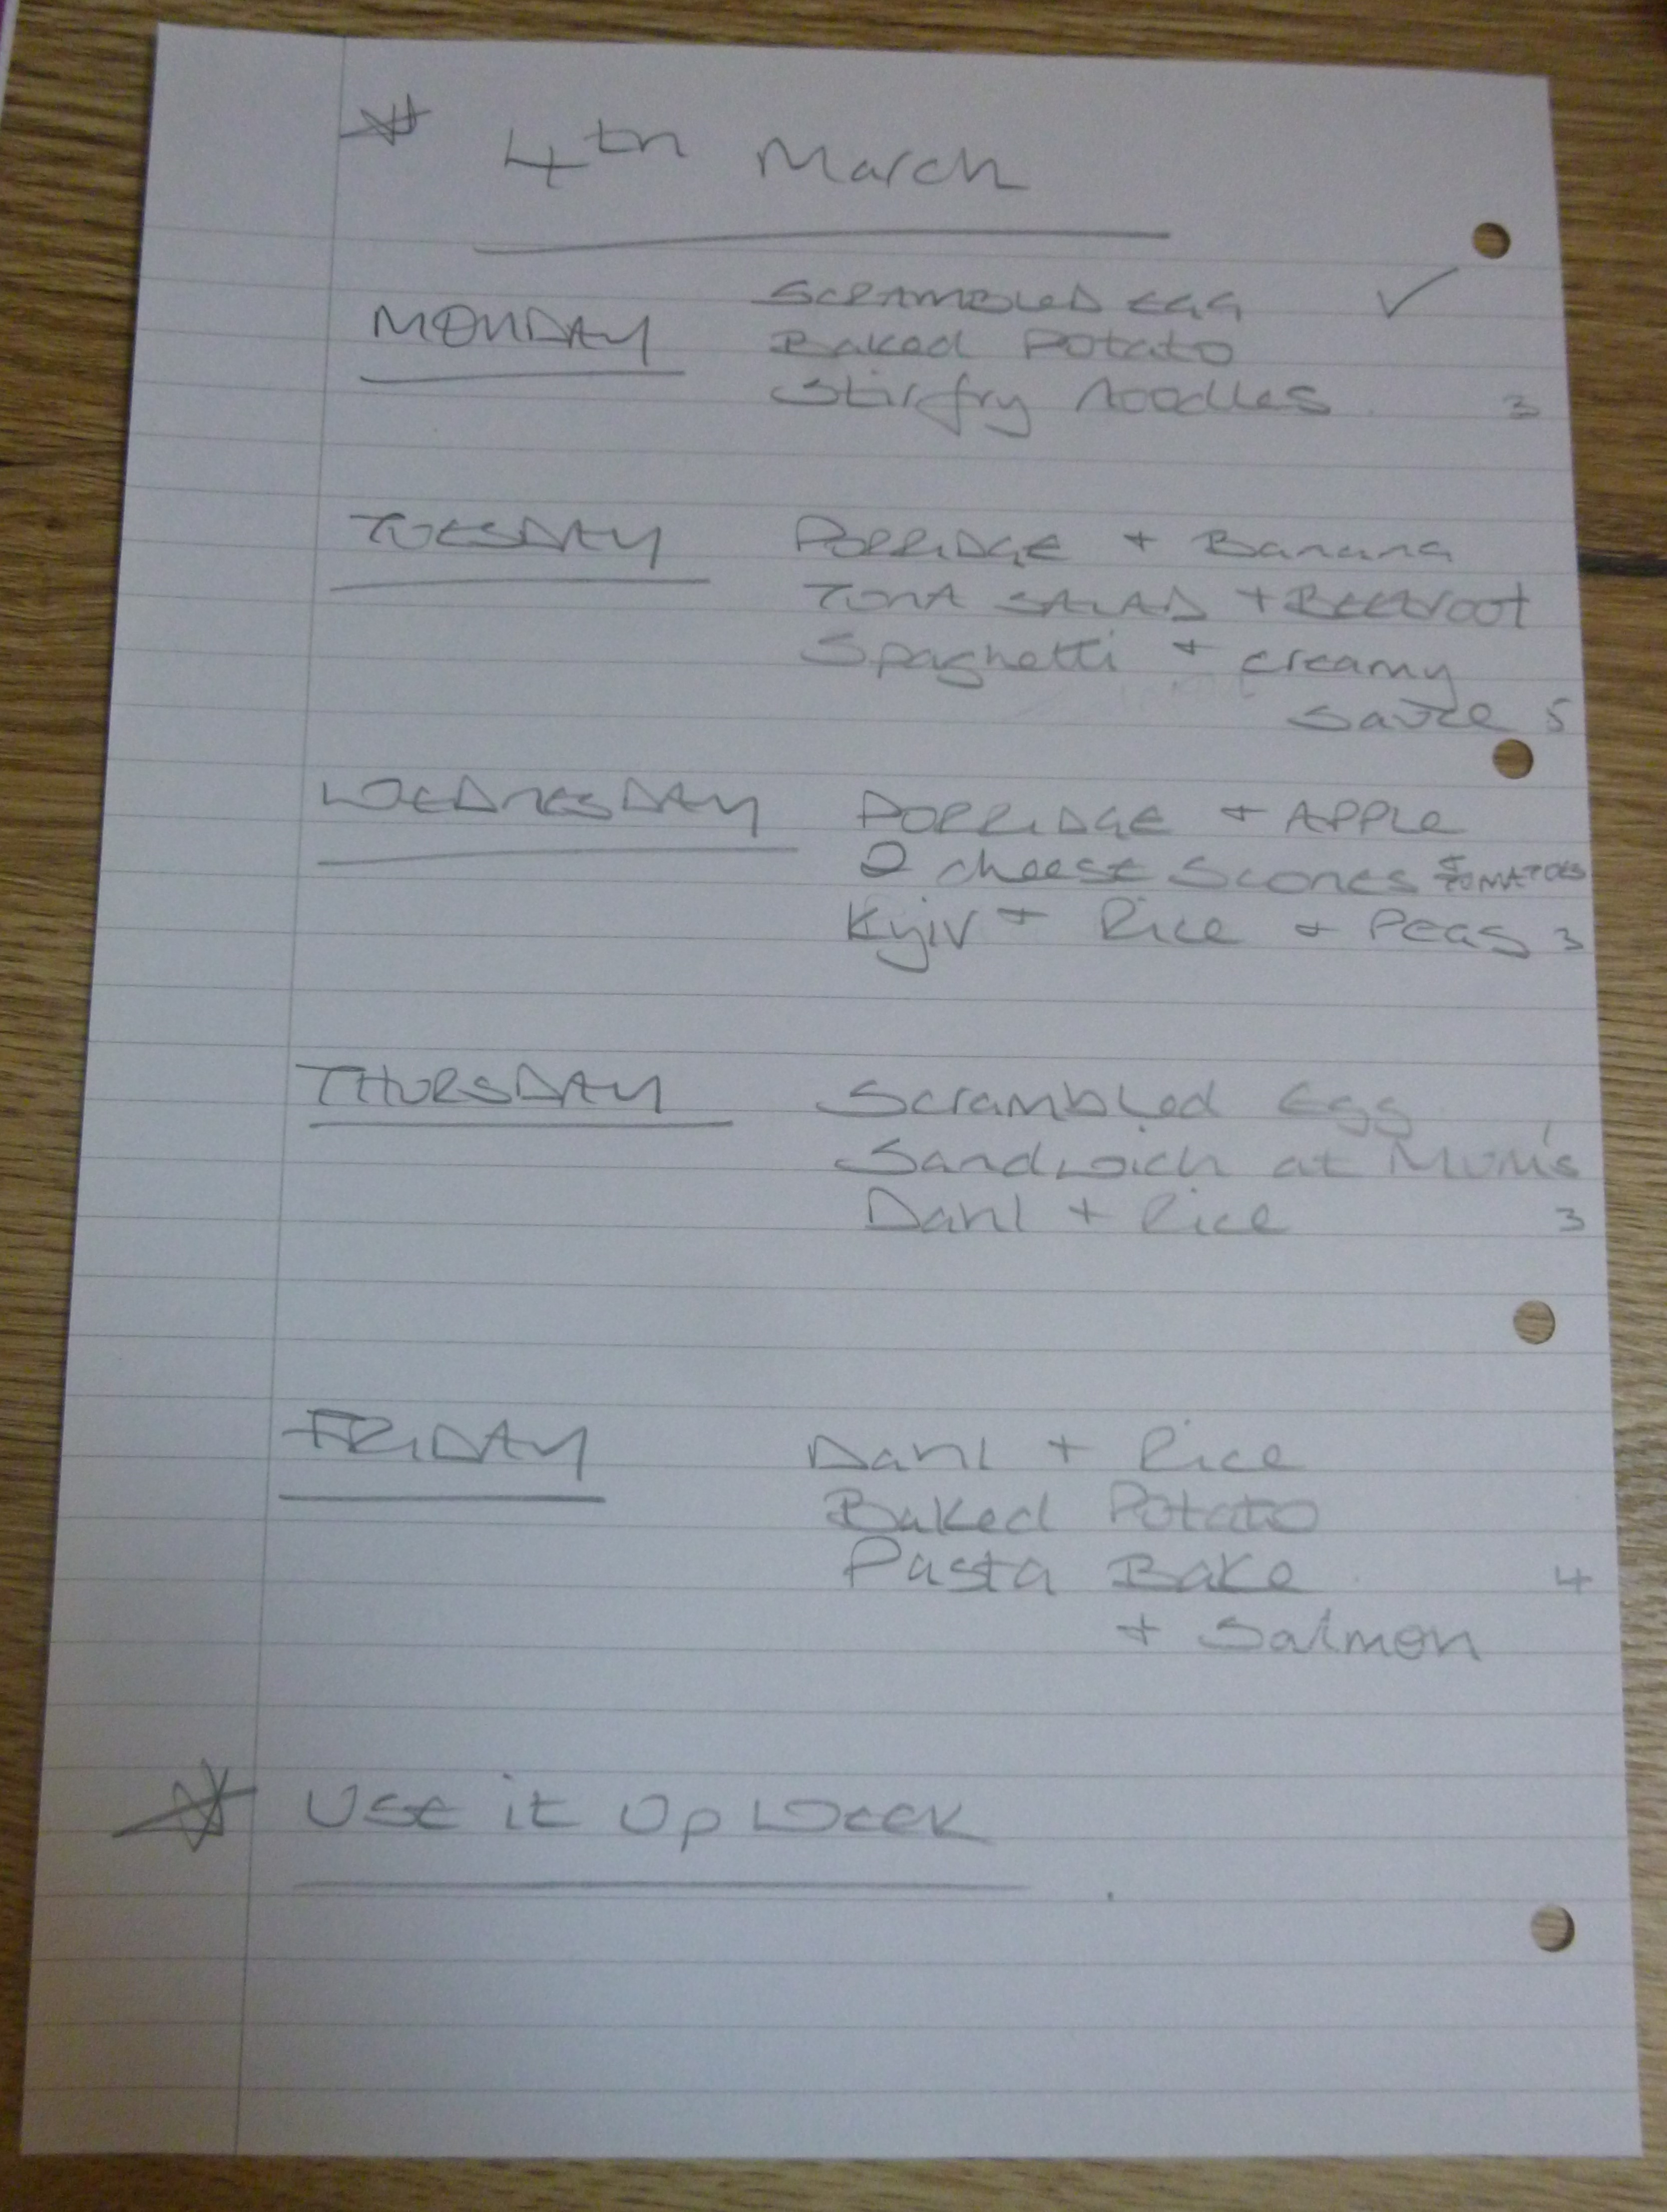 4th March
MONDAY SCRAMBLED EGG ✓
Baked Potato
Stirfry Noodles 3
TUESDAY PORRIDGE + Banana
TUNA SALAD + Beetroot
Spaghetti + creamy
sauce 5
WEDNESDAY PORRIDGE + APPLE
2 cheese Scones + TOMATOES
Kyiv + Rice + Peas 3
THURSDAY Scrambled Egg
Sandwich at Mum's
Dahl + Rice 3
FRIDAY Dahl + Rice
Baked Potato
Pasta Bake 4
+ Salmon
Use it Up Week